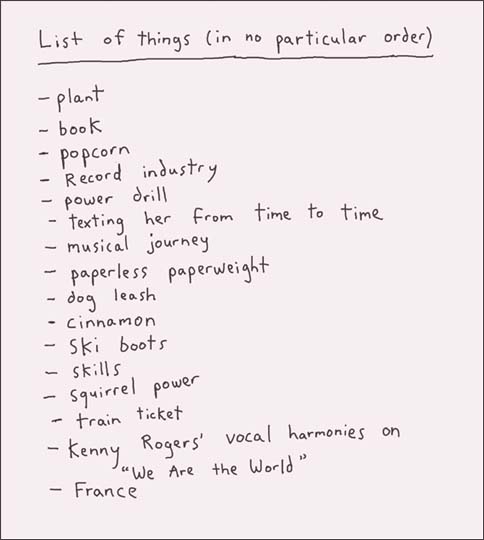 List of things (in no particular order)
- plant
- book
- popcorn
- Record industry
- power drill
- texting her from time to time
- musical journey
- paperless paperweight
- dog leash
- cinnamon
- Ski boots
- skills
- squirrel power
- train ticket
- Kenny Rogers' vocal harmonies on
"We Are the World"
- France